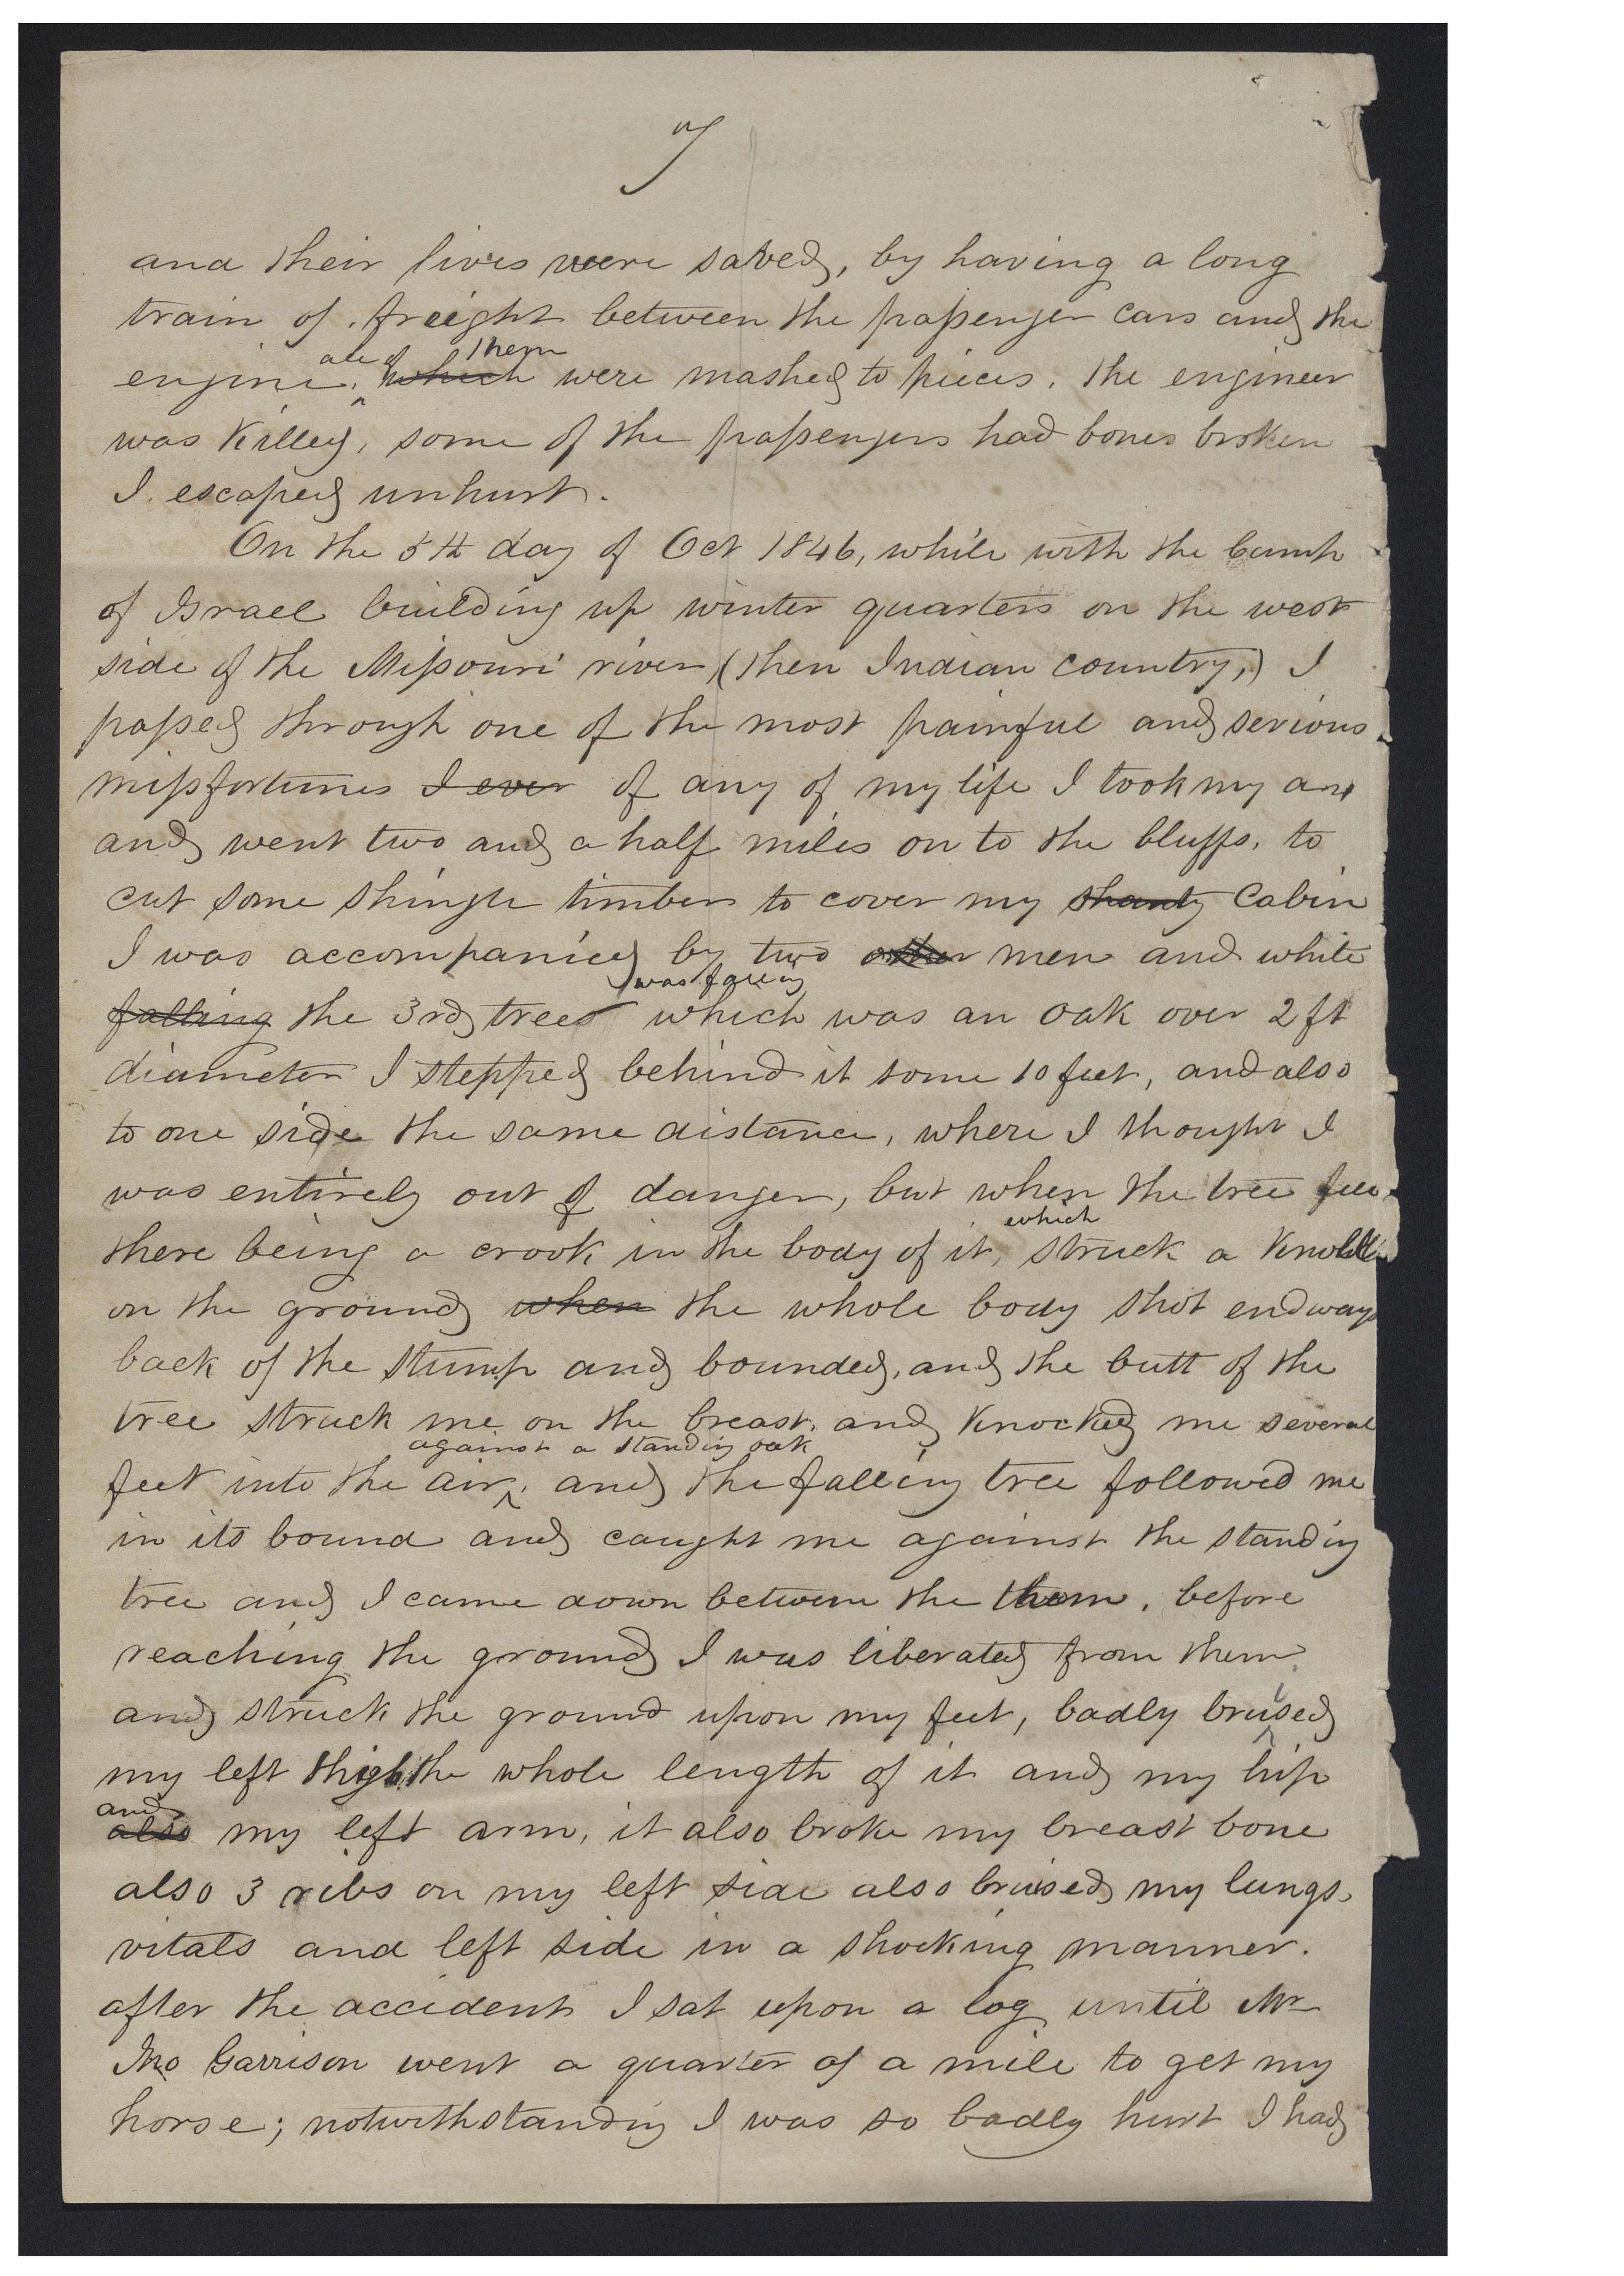 7
and their lives were saved, by having a long
train of freight between the passenger cars and the
all of them
engine. which were mashed to pieces. the engineer
was Killed, some of the passengers had bones broken
I escaped unhurt.
On the 5th day of Oct 1846, while with the Camp
of Israel building up winter quarters on the west
side of the Missouri river (then Indian country,) I
passed through one of the most painful and serious
missfortunes I ever of any of my life I took my
and went two and a half miles on to the bluffs, to
cut some shingle timber to cover my shanty Cabin
I was accompanied by two other men and while
was falling
falling the 3rd tree which was an oak over 2 ft
diameter I stepped behind it some 10 feet, and also
to one side the same distance, where I thought I
was entirely out of danger, but when the tree fell
which
there being a crook in the body of it, struck a Knoll
on the ground when the whole body shot endways
back of the stump and bounded, and the butt of the
tree struck me on the breast, and Knocked me several
against a standing oak
feet into the air, and the falling tree followed me
in its bound and caught me against the standing
tree and I came down between the them, before
reaching the ground I was liberated from them
and struck the ground upon my feet, badly bruised
my left thigh the whole length of it and my hip
and
also my left arm, it also broke my breast bone
also 3 ribs on my left side also bruised my lungs,
vitals and left side in a shocking manner.
after the accident I sat upon a log until Mr
Jno Garrison went a quarter of a mile to get my
horse; notwithstanding I was so badly hurt I had